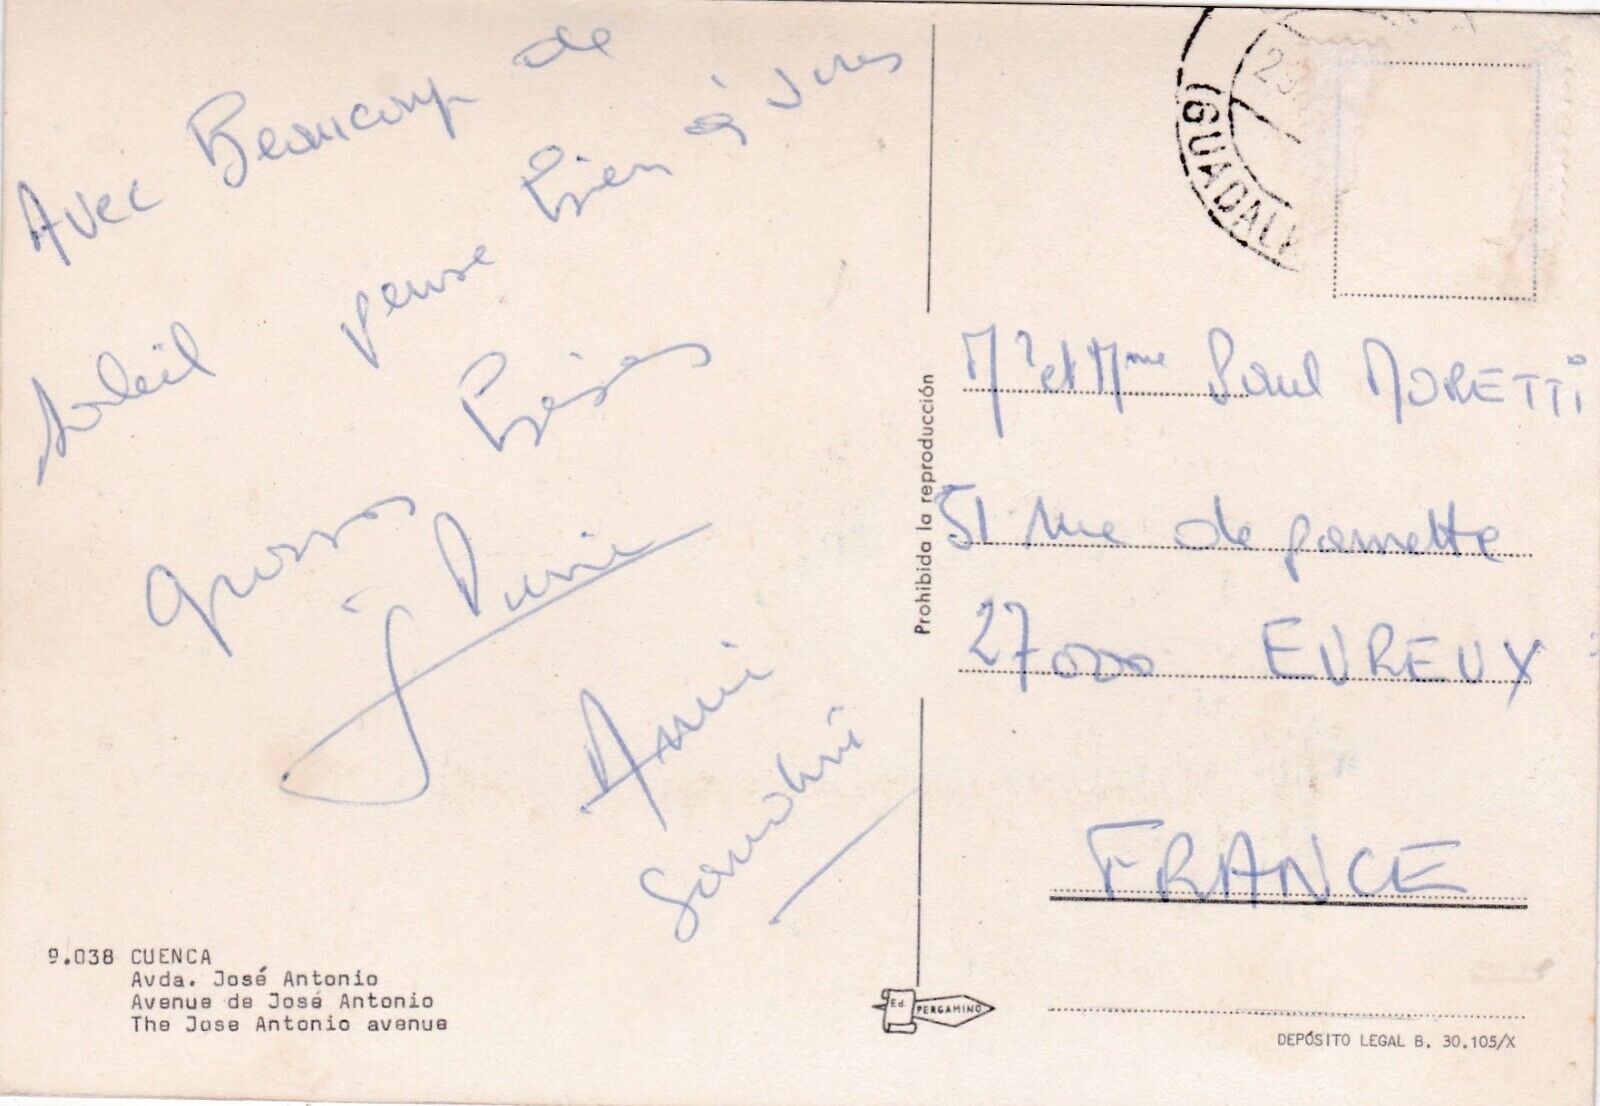 Avec Beaucoup de
Soleil pense bien à vous
grosses Bises
Annie
Sandrine
(GUADAL
Mr et Mme Paul MORETTI
51 rue de pannette
27000 EVREUX
FRANCE
Prohibida la reproducción
9.038 CUENCA
Avda. José Antonio
Avenue de José Antonio
The Jose Antonio avenue
Ed. PERGAMINO
DEPÓSITO LEGAL B. 30.105/X